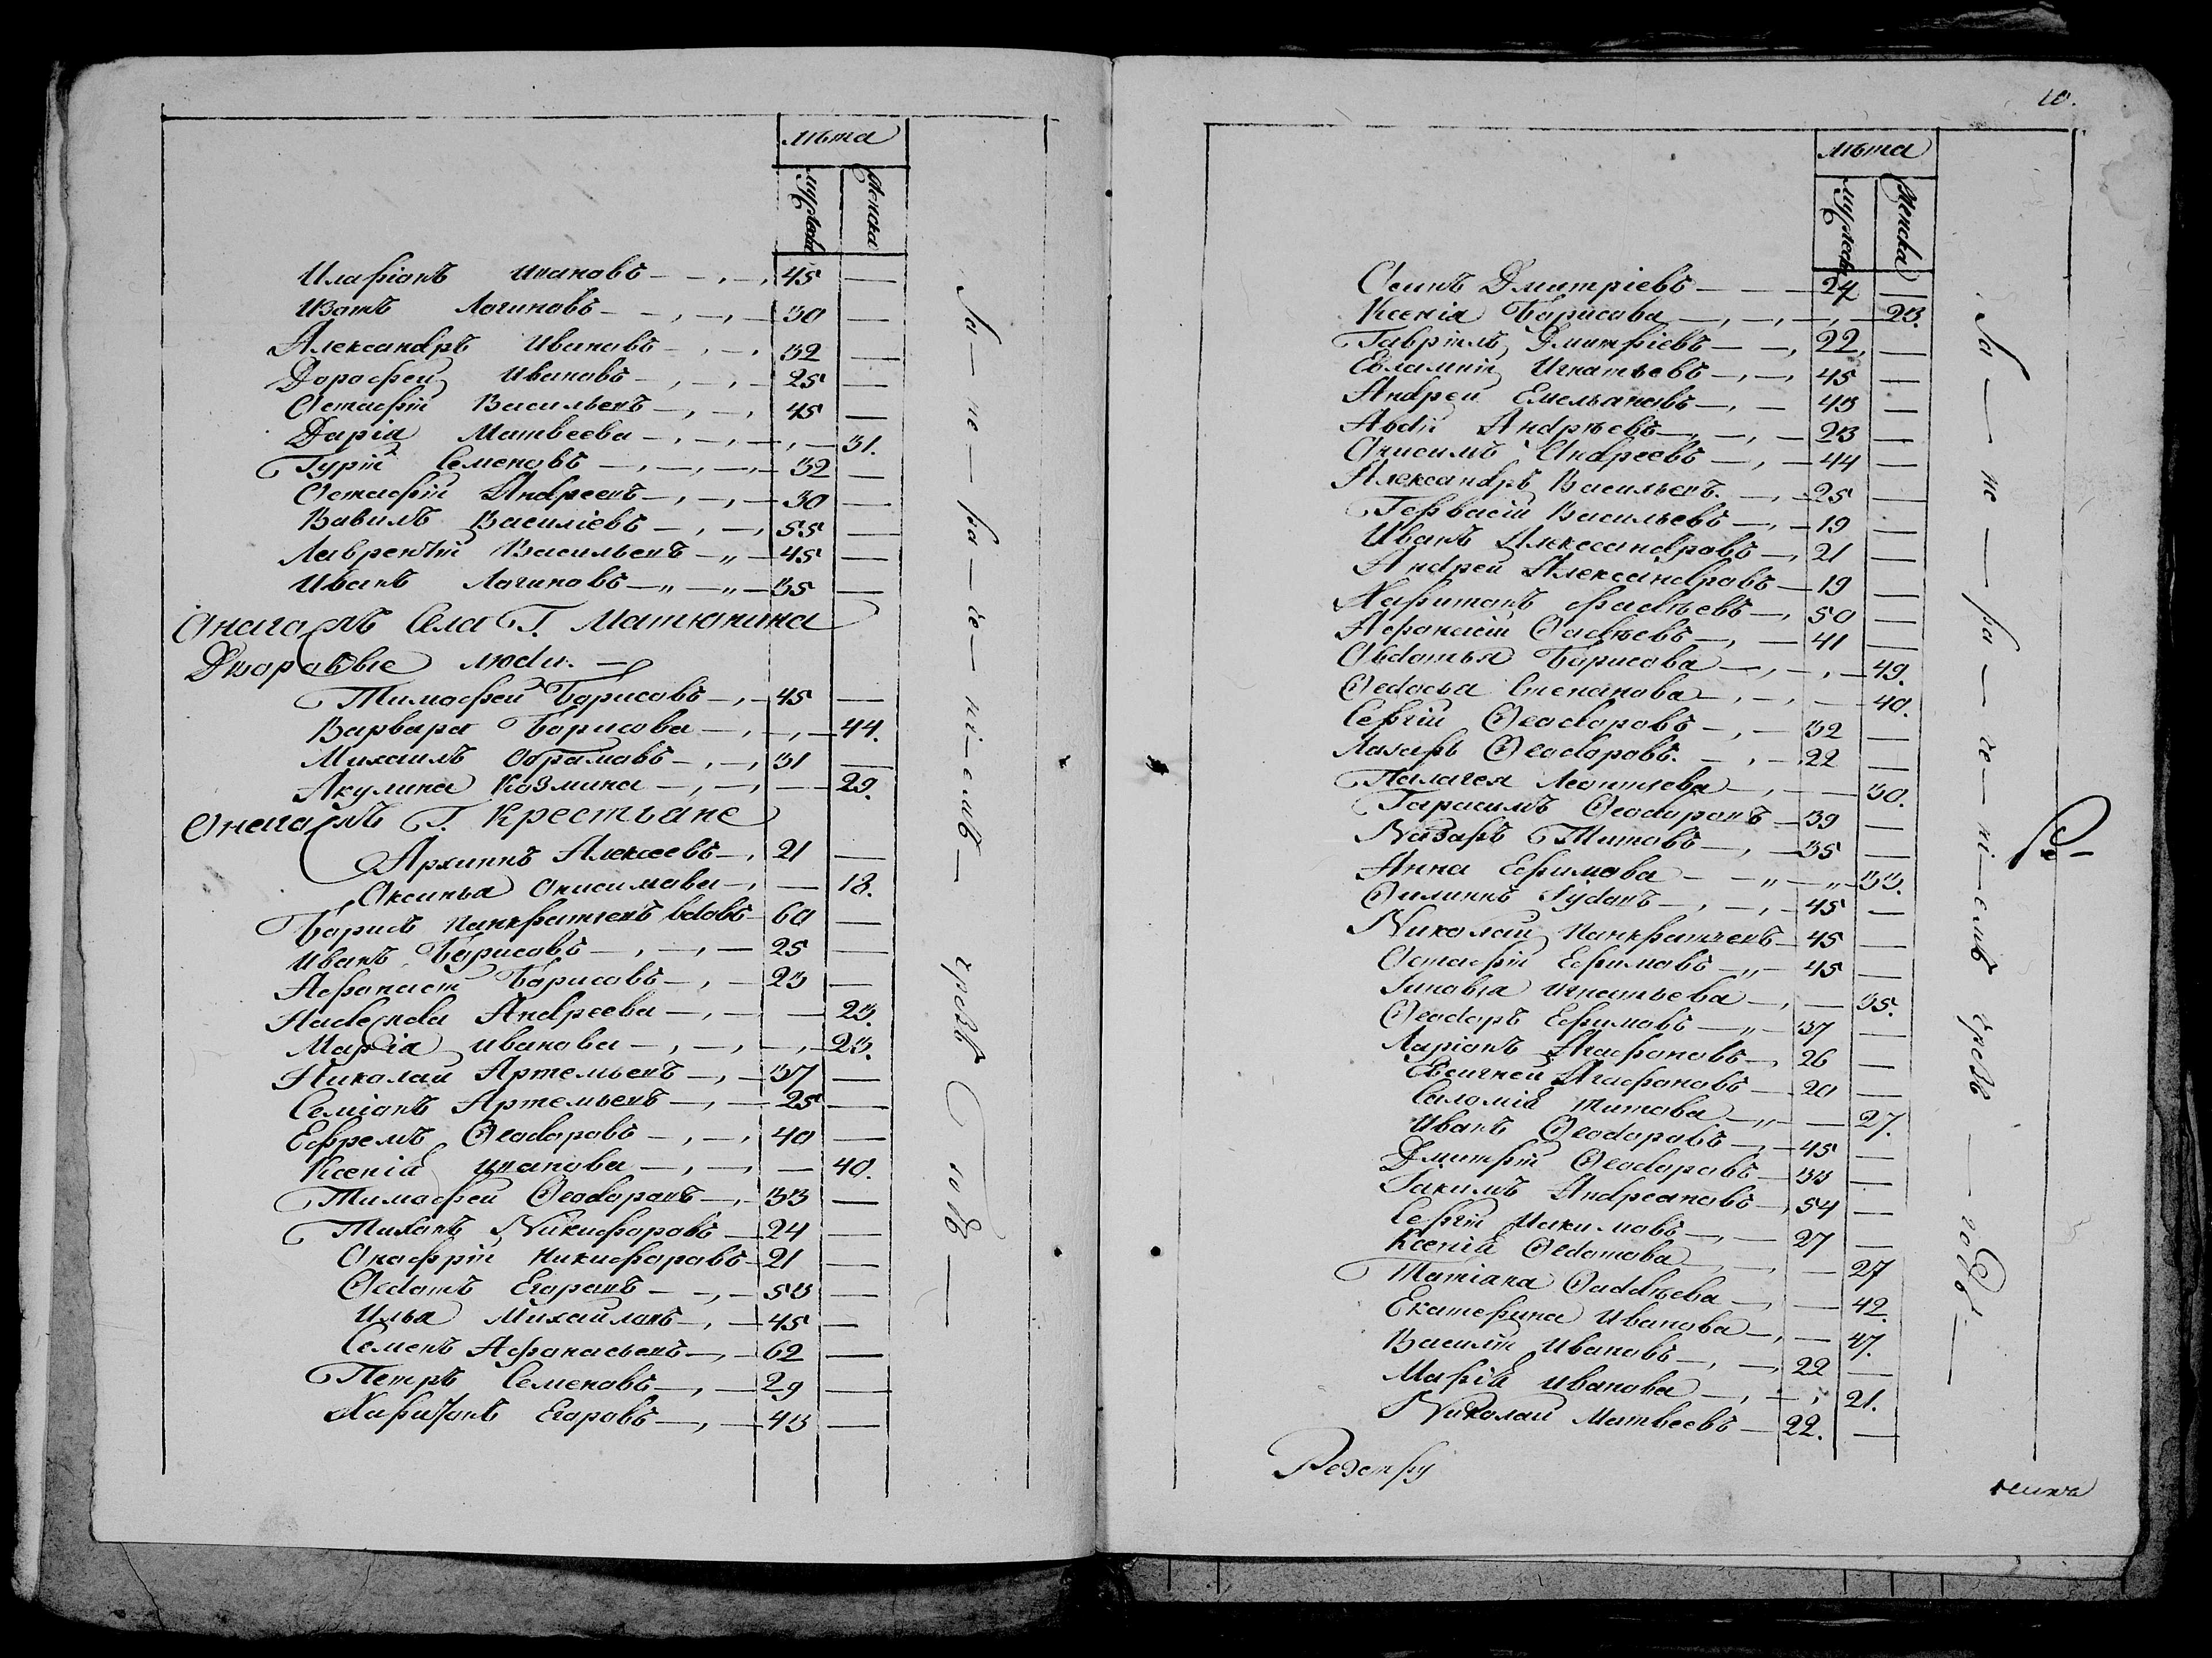 лѣта
мужеска
женска
Иларіонъ Ивановъ 45
Иванъ Логиновъ 30
Александръ Ивановъ 32
Дорофей Ивановъ 25
Остафій Васильевъ 45
Дарія Матвеева 31.
Гурій Семеновъ 32
Остафій Андреевъ 30
Вавилъ Василіевъ 55
Лаврентій Васильевъ 45
Иванъ Логиновъ 35
Онагожъ Села Г. Матюнина
Дворовые люди.
Тимофей Борисовъ 45
Варвара Борисова 44.
Михаилъ Обрамовъ 31
Акулина Козмина 29.
Онагожъ Г. Крестьяне
Архиппъ Алексеевъ 21
Оксинья Онисимова 18.
Борисъ Панкратьевъ вдовъ 60
Иванъ Борисовъ 25
Афонасій Борисовъ 23
Надежда Андреева 23.
Марія Иванова 23.
Николай Артемьевъ 37
Семіонъ Артемьевъ 25
Ефремъ Ѳеодоровъ 40
Ксенія Иванова 40.
Тимофей Ѳеодоровъ 33
Тихонъ Никифоровъ 24
Онофрій Никифоровъ 21
Ѳедотъ Егоровъ 53
Илья Михайловъ 45
Семенъ Афонасьевъ 62
Петръ Семеновъ 29
Харитонъ Егоровъ 43
За не ра че ні емъ чрезъ годъ
10.
лѣта
мужеска
женска
Осипъ Дмитріевъ 24
Ксенія Борисова 23.
Гаврілъ Дмитріевъ 22
Евлампій Игнатьевъ 45
Андрей Емельяновъ 43
Авдій Андрѣевъ 23
Онисимъ Андреевъ 44
Александръ Васильевъ 25
Гервасій Васильевъ 19
Иванъ Александровъ 21
Андрей Александровъ 19
Харитонъ Фадѣевъ 50
Афонасій Ѳадѣевъ 41
Овдотья Борисова 49.
Ѳедосья Степанова 40.
Сергій Ѳеодоровъ 32
Лазарь Ѳеодоровъ 22
Палагея Леонтьева 30.
Гарасимъ Ѳеодоровъ 39
Назаръ Титовъ 35
Анна Ефимова 33.
Ѳилиппъ Іудовъ 45
Николай Панкратьевъ 45
Остафій Ефимовъ 45
Зиновья Игнатьева 35.
Ѳеодоръ Ефимовъ 37
Ларіонъ Агафоновъ 26
Евсигней Агафоновъ 20
Саломія Титова 27.
Иванъ Ѳеодоровъ 45
Дмитрій Ѳеодоровъ 33
Іакимъ Андреановъ 54
Сергій Иакимовъ 27
Ксенія Ѳедотова 27
Татіана Ѳаддѣева 42.
Екатерина Иванова 47.
Василій Ивановъ 22
Марія Иванова 21.
Николай Матвеевъ 22.
За не ра че ні емъ чрезъ годъ